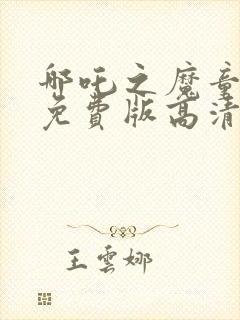 哪吒之魔童
免費版高清
王雲娜